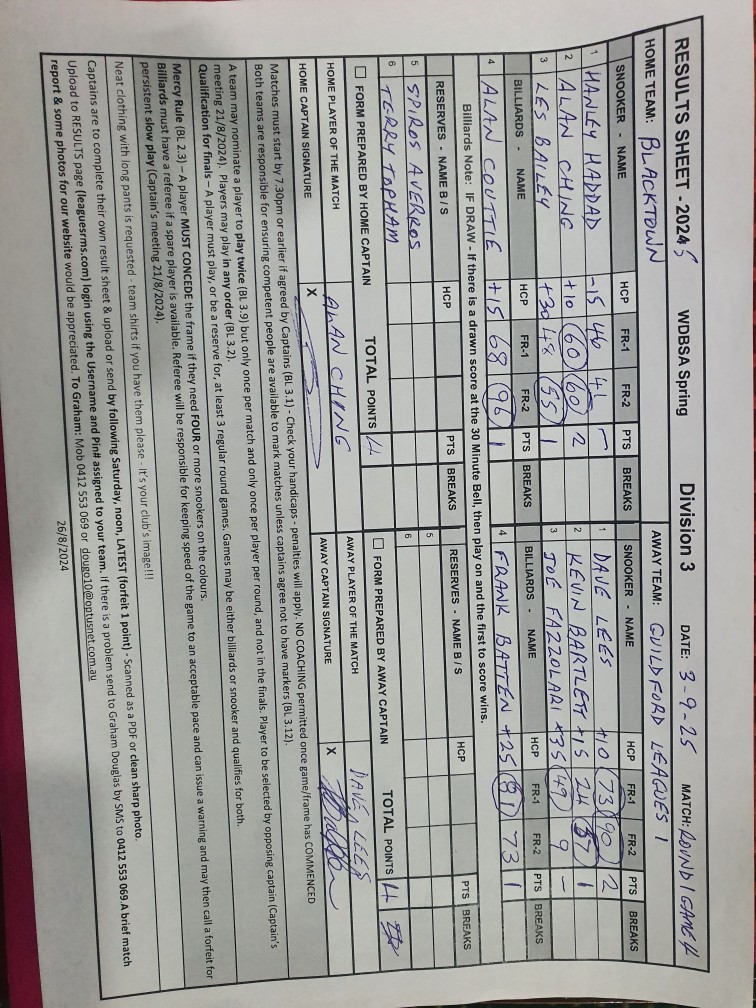 RESULTS SHEET - 2024 5 WDBSA Spring Division 3 DATE: 3-9-25 MATCH: ROUND 1 GAME 4
HOME TEAM: BLACKTOWN AWAY TEAM: GUILDFORD LEAGUES 1
SNOOKER - NAME HCP FR-1 FR-2 PTS BREAKS SNOOKER - NAME HCP FR-1 FR-2 PTS BREAKS
1 HANLEY HADDAD -15 46 41 - 1 DAVE LEES +10 73 90 2
2 ALAN CHING +10 60 60 2 2 KEVIN BARTLETT +15 24 57 1
3 LES BAILEY +30 48 55 1 3 JOE FAZZOLARI +35 49 9 -
BILLIARDS - NAME HCP FR-1 FR-2 PTS BREAKS BILLIARDS - NAME HCP FR-1 FR-2 PTS BREAKS
4 ALAN COUTTIE +15 68 96 1 4 FRANK BATTEN +25 81 73 1
Billiards Note: IF DRAW - If there is a drawn score at the 30 Minute Bell, then play on and the first to score wins.
RESERVES - NAME B / S HCP PTS BREAKS RESERVES - NAME B / S HCP PTS BREAKS
5 SPIROS AVERROS 5
6 TERRY TOPHAM 6
FORM PREPARED BY HOME CAPTAIN TOTAL POINTS 4 FORM PREPARED BY AWAY CAPTAIN TOTAL POINTS 4
HOME PLAYER OF THE MATCH ALAN CHING AWAY PLAYER OF THE MATCH DAVE LEES
HOME CAPTAIN SIGNATURE X AWAY CAPTAIN SIGNATURE X
Matches must start by 7.30pm or earlier if agreed by Captains (BL 3.1) - Check your handicaps - penalties will apply. NO COACHING permitted once game/frame has COMMENCED
Both teams are responsible for ensuring competent people are available to mark matches unless captains agree not to have markers (BL 3.12).
A team may nominate a player to play twice (BL 3.9) but only once per match and only once per player per round, and not in the finals. Player to be selected by opposing captain (Captain's
meeting 21/8/2024). Players may play in any order (BL 3.2).
Qualification for finals – A player must play, or be a reserve for, at least 3 regular round games. Games may be either billiards or snooker and qualifies for both.
Mercy Rule (BL 2.3) – A player MUST CONCEDE the frame if they need FOUR or more snookers on the colours.
Billiards must have a referee if a spare player is available. Referee will be responsible for keeping speed of the game to an acceptable pace and can issue a warning and may then call a forfeit for
persistent slow play (Captain's meeting 21/8/2024).
Neat clothing with long pants is requested - team shirts if you have them please - it's your club's image!!!
Captains are to complete their own result sheet & upload or send by following Saturday, noon, LATEST (forfeit 1 point) - Scanned as a PDF or clean sharp photo.
Upload to RESULTS page (leaguesrms.com) login using the Username and Pin# assigned to your team. If there is a problem send to Graham Douglas by SMS to 0412 553 069 A brief match
report & some photos for our website would be appreciated. To Graham: Mob 0412 553 069 or dougo10@optusnet.com.au
26/8/2024